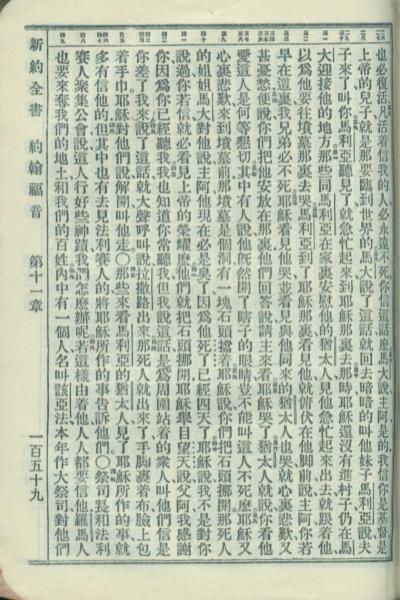 也必復活凡活着信我的人必永遠不死你信這話麼馬大說主阿是的我信你是基督是
上帝的兒子就是那要臨到世界的馬大說了這話就回去暗暗的叫他妹子馬利亞說夫
子來了叫你馬利亞聽見了就急忙起來到耶穌那裏去那時耶穌還沒有進村子仍在馬
大迎接他的地方那些同馬利亞在家裏安慰他的猶太人見他急忙起來出去就跟着他
以爲他要往墳墓那裏去哭馬利亞到了耶穌那裏看見他就俯伏在他脚前說主阿你若
早在這裏我兄弟必不死耶穌看見他哭並看見與他同來的猶太人也哭就心裏悲歎又
甚憂愁便說你們把他安放在那裏他們回答說請主來看耶穌哭了猶太人就說你看他
愛這人是何等懇切其中有人說他既然開了瞎子的眼睛豈不能叫這人不死麼耶穌又
心裏悲歎來到墳墓前那墳墓是個洞有一塊石頭擋着耶穌說你們把石頭挪開那死人
的姐姐馬大對他說主阿他現在必是臭了因爲他死了已經四天了耶穌說我不是對你
說過你若信就必看見上帝的榮耀麼他們就把石頭挪開耶穌舉目望天說父阿我感謝
你因爲你已經聽我我也知道你常聽我但我說這話是爲周圍站着的衆人叫他們信是
你差了我來說了這話就大聲呼叫說拉撒路出來那死人就出來了手脚裹着布臉上包
着手巾耶穌對他們說解開叫他走〇那些來看馬利亞的猶太人見了耶穌所作的事就
多有信他的但其中也有去見法利賽人的將耶穌所作的事告訴他們〇祭司長和法利
賽人聚集公會說這人行好些神蹟我們怎麼辦呢若這樣由着他人人都要信他羅馬人
也要來奪我們的地土和我們的百姓內中有一個人名叫該亞法本年作大祭司對他們
新約全書 約翰福音 第十一章 一百五十九